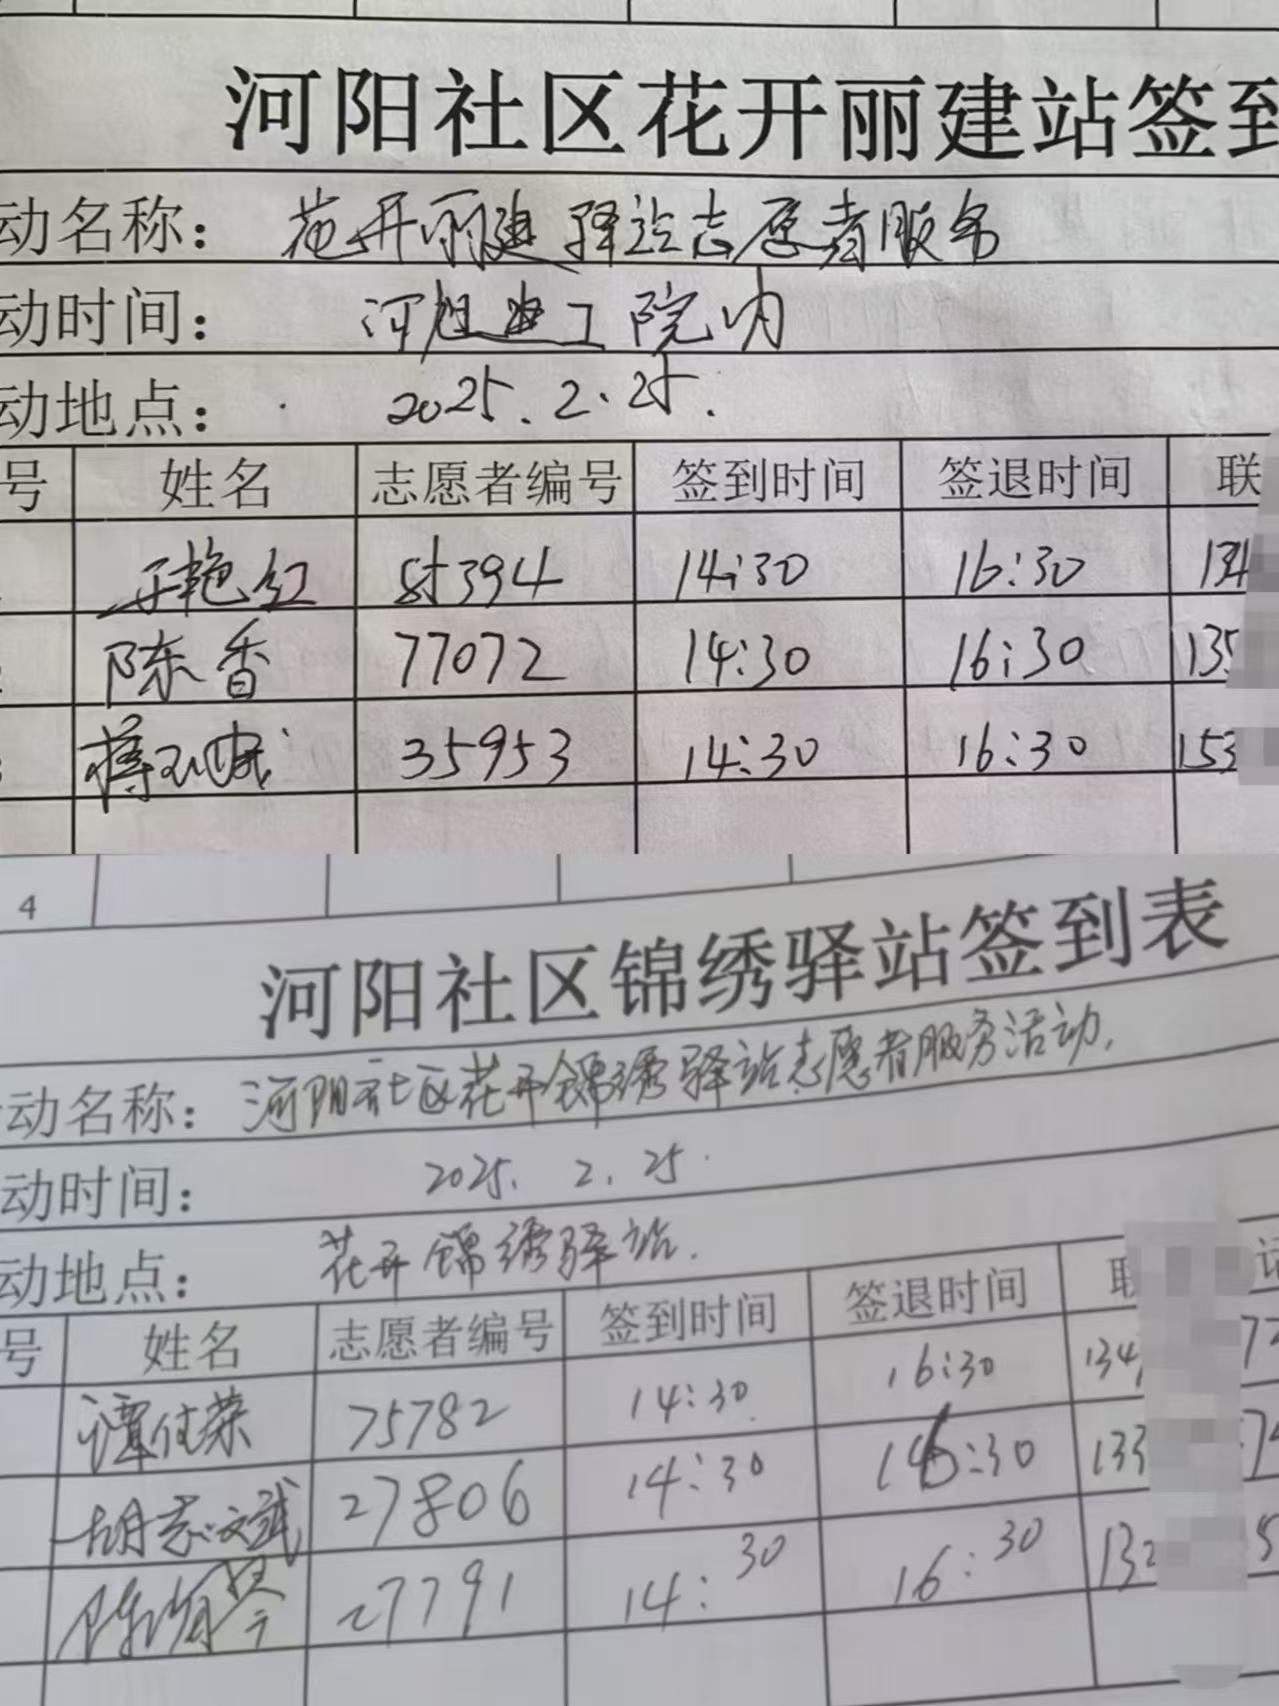 河阳社区花开丽建站签到
动名称：花开丽建驿站志愿者服务
动时间：河 建工院内
动地点：2025.2.25.
号 姓名 志愿者编号 签到时间 签退时间 联
艳红 394 14:30 16:30 134
陈香 77072 14:30 16:30 135
蒋 35953 14:30 16:30 153
4
河阳社区锦绣驿站签到表
动名称：河阳社区花开锦绣驿站志愿者服务活动.
动时间：2025.2.25.
动地点：花开锦绣驿站.
号 姓名 志愿者编号 签到时间 签退时间 联 记
谭仕荣 75782 14:30 16:30 134 72
胡志斌 27806 14:30 16:30 133 74
陈 琴 27791 14:30 16:30 132 5